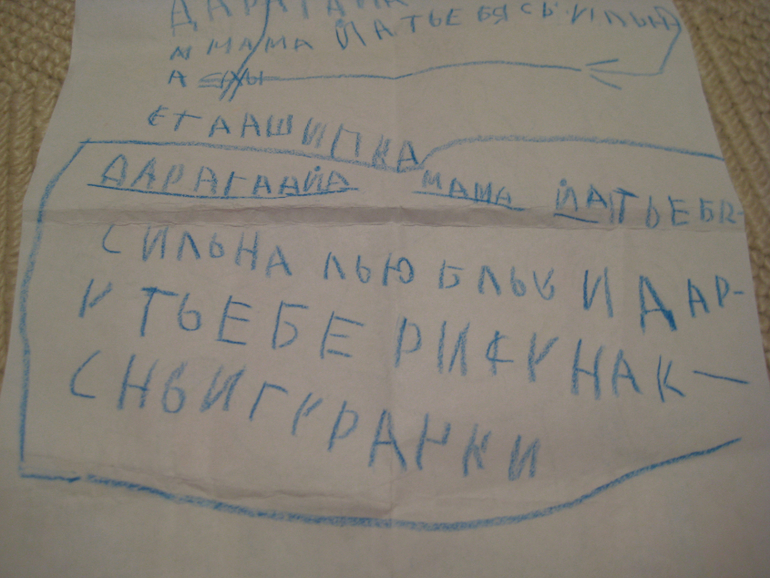 ДАРАГАЯ
МАМА ЙАТЬЕБЯСЬИЛЬНА
А
ЕТААШИПКА
ДАРАГААЙА МАМА ЙАТЬЕБЯ-
СИЛЬНА ЛЬЮБЛЬЮ И ДАР-
У ТЬЕБЕ РИСУНАК —
СНЬИГУРАЧКИ